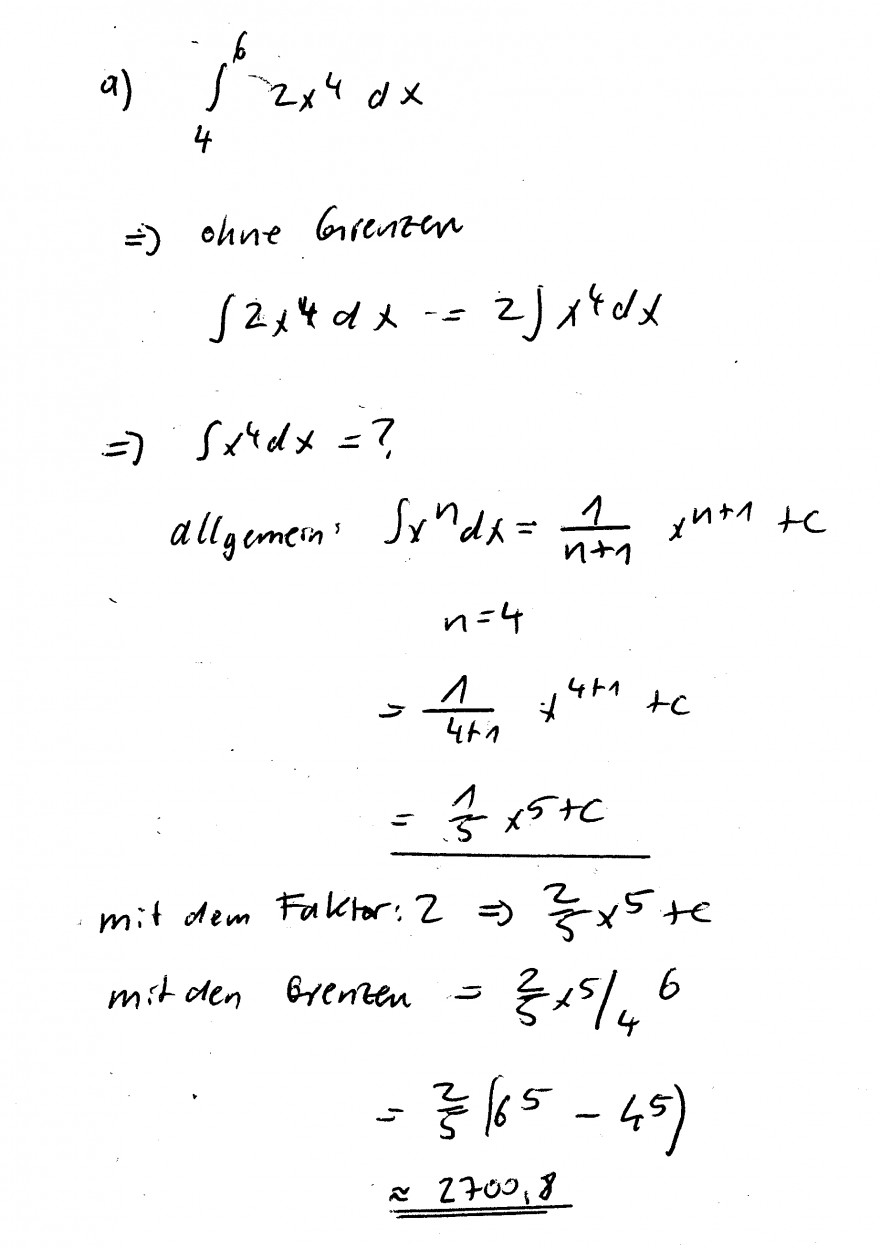 a) ∫₄⁶ 2x⁴ dx
=> ohne Grenzen
∫2x⁴ dx = 2∫x⁴dx
=> ∫x⁴dx = ?
allgemein: ∫xⁿdx = 1/(n+1) xⁿ⁺¹ +C
n=4
= 1/(4+1) x⁴⁺¹ +C
= 1/5 x⁵+C
mit dem Faktor: 2 => 2/5 x⁵ +C
mit den Grenzen = 2/5 x⁵/₄ ⁶
= 2/5 (6⁵ - 4⁵)
≈ 2700,8